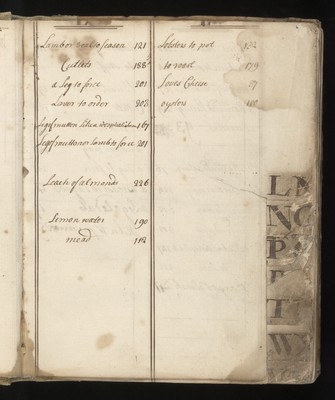 Lamb or veal to season 121
Cutlets 188
a Leg to force 201
Laver to order 203
Legs of mutton 167
Legs of mutton or lamb to force 201
Leach of almonds 226
Lemon water 190
mead 118
Lobsters to pot
to roast 179
Loves Cheese 57
oysters
L
NO
P
T
W